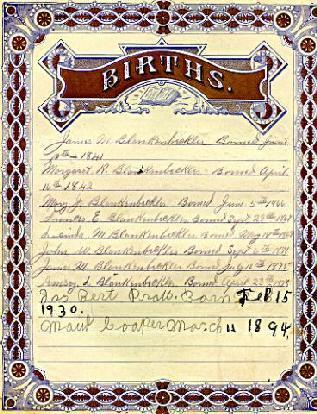 BIRTHS.
James M Blankenbekler Borned June
10th - 1841
Margaret R. Blankenbekler - Borned April
16th 1842
Mary J. Blankenbekler - Borned June 5th 1866
E. Blankenbekler Borned Sept 29th
M Blankenbekler Borned May
John W Blankenbekler Borned Sept
James M Blankenbekler Borned July 12th 1875
L Blankenbekler Borned April 22nd
Bert Pratt. Born Feb 15
1930.
Maud Cooper March 11 1894